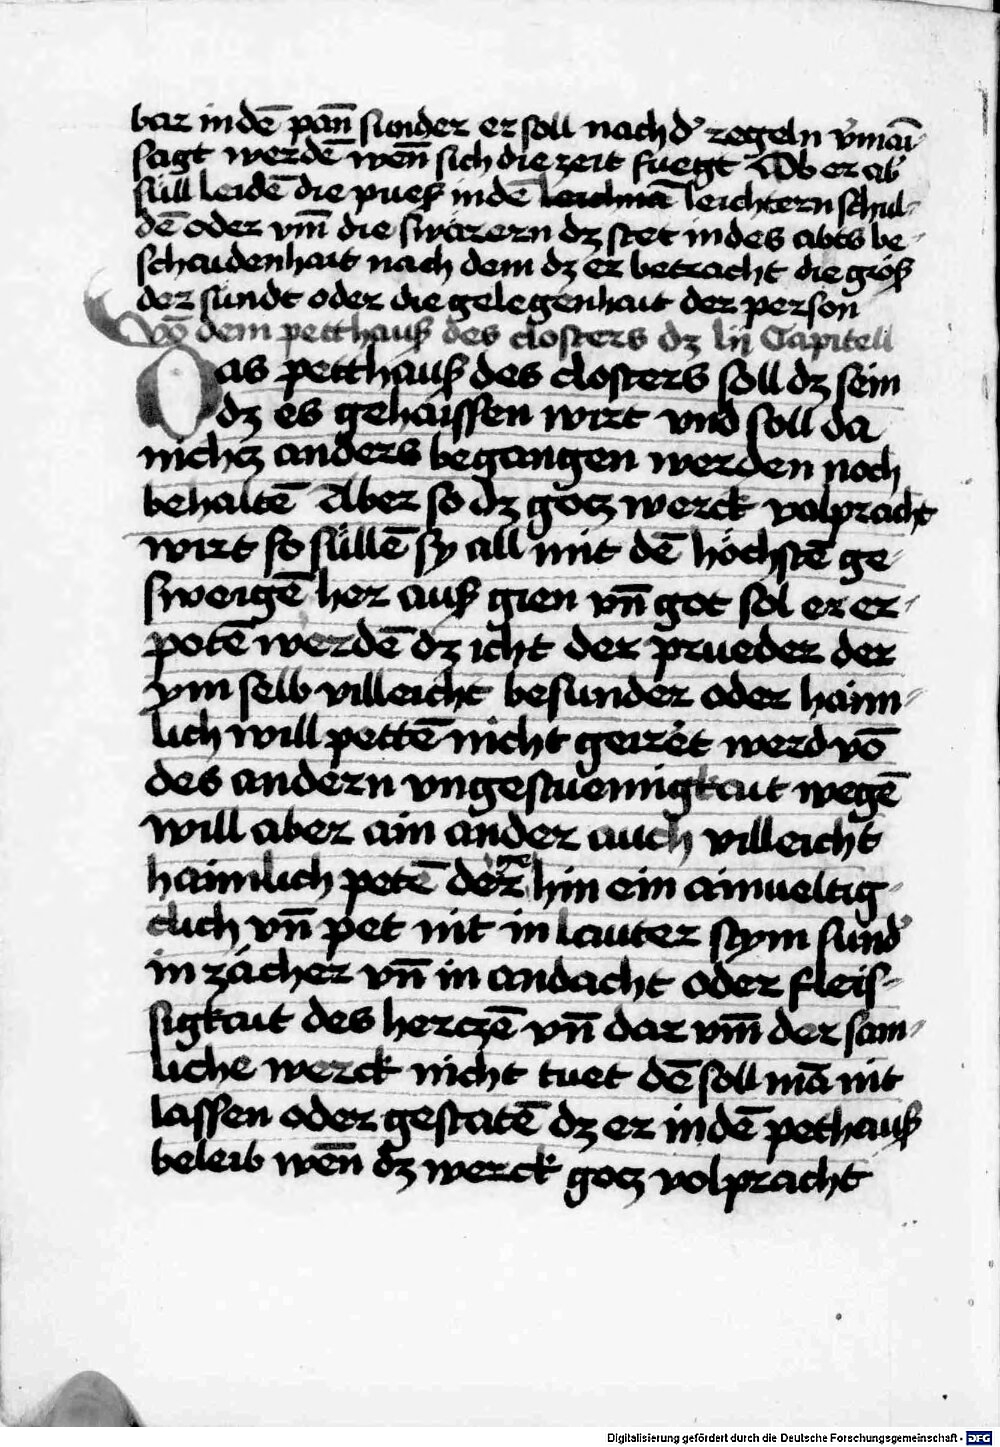 bar in dē pān̄ sunder er soll nach d' regeln v̓mai-
sagt werdē wen̄ sich die zeit fuegt Ab er ab'
süll leidē die pueß in dē leichtern schul-
dē oder vm̄ die swärern dz stet in des abts be-
schaidenhait nach dem dz er betracht die größ
der sündt oder die gelegenhait der person
Vō dem petthauß des closters dz lij Capitell
Das petthauß des closters soll dz sein
dz es gehaissen wirt vnd soll da
nichcz anders begangen werden noch
behaltē Aber so dz gocz werck volpracht
wirt so süllē sy all mit dē höchstē ge-
sweigē her auß gien vn̄ got sol er er-
potē werdē dz icht der prueder der
ym selb villeicht besunder oder haim-
lich will pettē nicht geirret werd vō
des andern vngestuemigkait wegē
will aber ain ander auch villeicht
haimlich petē der ge hin ein ainueltig-
clich vn̄ pet nit in lauter stym sund'
in zächer vn̄ in andacht oder fleis-
sigkait des herczē vn̄ dar vm̄ der sam-
liche werck nicht tuet dē soll mā nit
lassen oder gestatē dz er in dē pethauß
beleib wen̄ dz werck gocz volpracht
Digitalisierung gefördert durch die Deutsche Forschungsgemeinschaft - DFG